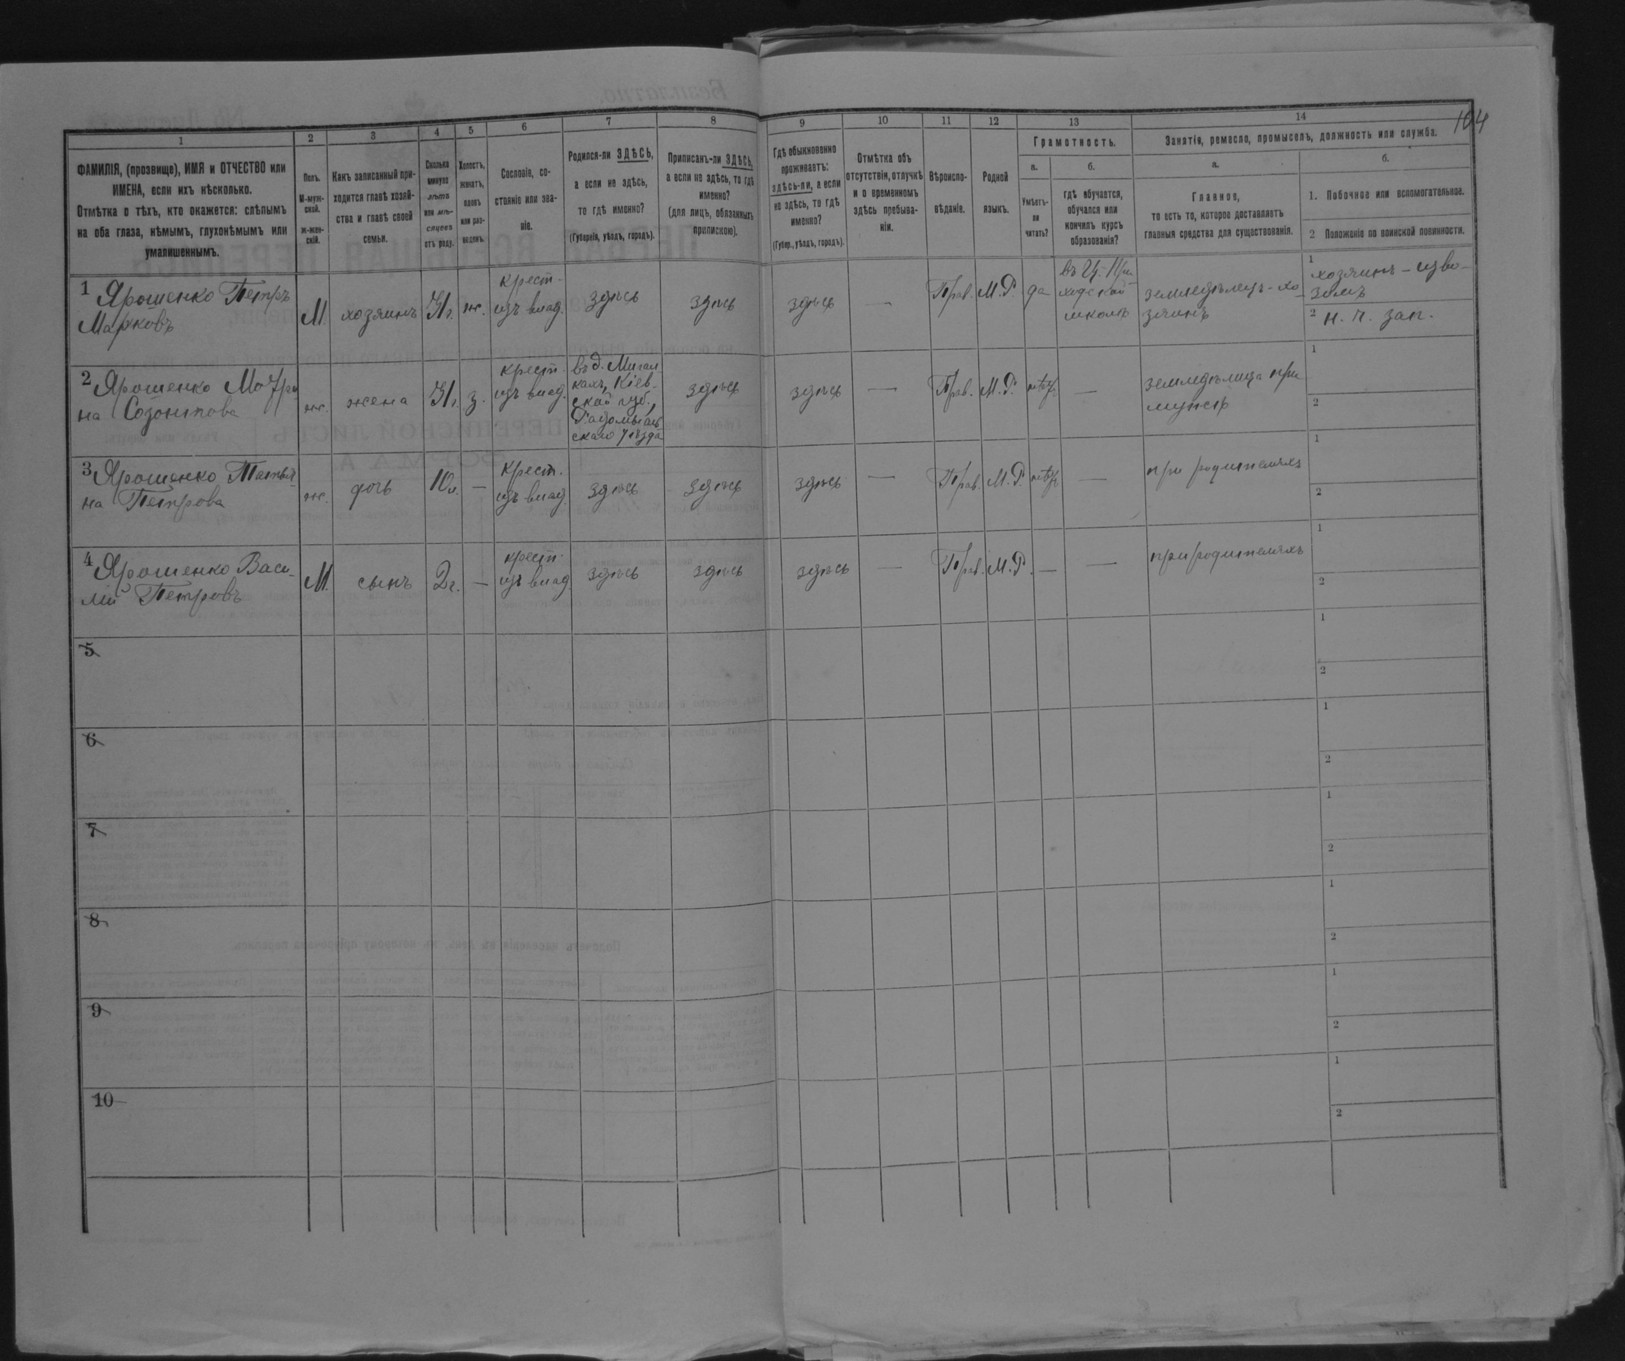 104
1 2 3 4 5 6 7 8 9 10 11 12 13 14
ФАМИЛІЯ, (прозвище), ИМЯ и ОТЧЕСТВО или
ИМЕНА, если ихъ нѣсколько.
Отмѣтка о тѣхъ, кто окажется: слѣпымъ
на оба глаза, нѣмымъ, глухонѣмымъ или
умалишеннымъ.
Полъ.
М-муж-
ской.
ж-жен-
скій.
Какъ записанный при-
ходится главѣ хозяй-
ства и главѣ своей
семьи.
Сколько
минуло
лѣтъ
или мѣ-
сяцевъ
отъ роду.
Холостъ,
женатъ,
вдовъ
или раз-
веденъ.
Сословіе, со-
стояніе или зва-
ніе.
Родился-ли ЗДѢСЬ,
а если не здѣсь,
то гдѣ именно?
(Губернія, уѣздъ, городъ).
Приписанъ-ли ЗДѢСЬ,
а если не здѣсь, то гдѣ
именно?
(для лицъ, обязанныхъ
припискою).
Гдѣ обыкновенно
проживаетъ:
здѣсь-ли, а если
не здѣсь, то гдѣ
именно?
(Губер., уѣздъ, городъ).
Отмѣтка объ
отсутствіи, отлучкѣ
и о временномъ
здѣсь пребыва-
ніи.
Вѣроиспо-
вѣданіе.
Родной
языкъ.
Грамотность.
а.
Умѣетъ-
ли
читать?
б.
Гдѣ обучается,
обучался или
кончилъ курсъ
образованія?
Занятіе, ремесло, промыселъ, должность или служба.
а.
Главное,
то есть то, которое доставляетъ
главныя средства для существованія.
б.
1. Побочное или вспомогательное.
2 Положеніе по воинской повинности.
1 Ярошенко Петръ
Марковъ
М.
хозяинъ
31 г.
ж.
крест.
изъ влад.
здѣсь
здѣсь
здѣсь
—
Прав.
М.Р.
да
въ Ц.-При-
ходской
школѣ
земледѣлец-хо-
зяинъ
1
хозяинъ - изво-
зомъ
2 н. ч. зап.
2 Ярошенко Мотри
на Созонтова
ж.
жена
31 г.
з.
крест.
изъ влад.
въ д. Мигал
кахъ, Кіев-
ской губ.,
Радомысль-
скаго уѣзда
здѣсь
здѣсь
—
Прав.
М.Р.
нѣтъ
—
земледѣлица при
мужѣ
1
2
3 Ярошенко Татья-
на Петрова
ж.
дочь
10 л.
—
крест.
изъ влад
здѣсь
здѣсь
здѣсь
—
Прав.
М.Р.
нѣтъ
—
при родителяхъ
1
2
4 Ярошенко Васи-
лій Петровъ
М.
сынъ
2 г.
—
крест.
изъ влад
здѣсь
здѣсь
здѣсь
—
Прав.
М.Р.
—
—
при родителяхъ
1
2
5
1
2
6
1
2
7
1
2
8
1
2
9
1
2
10
1
2